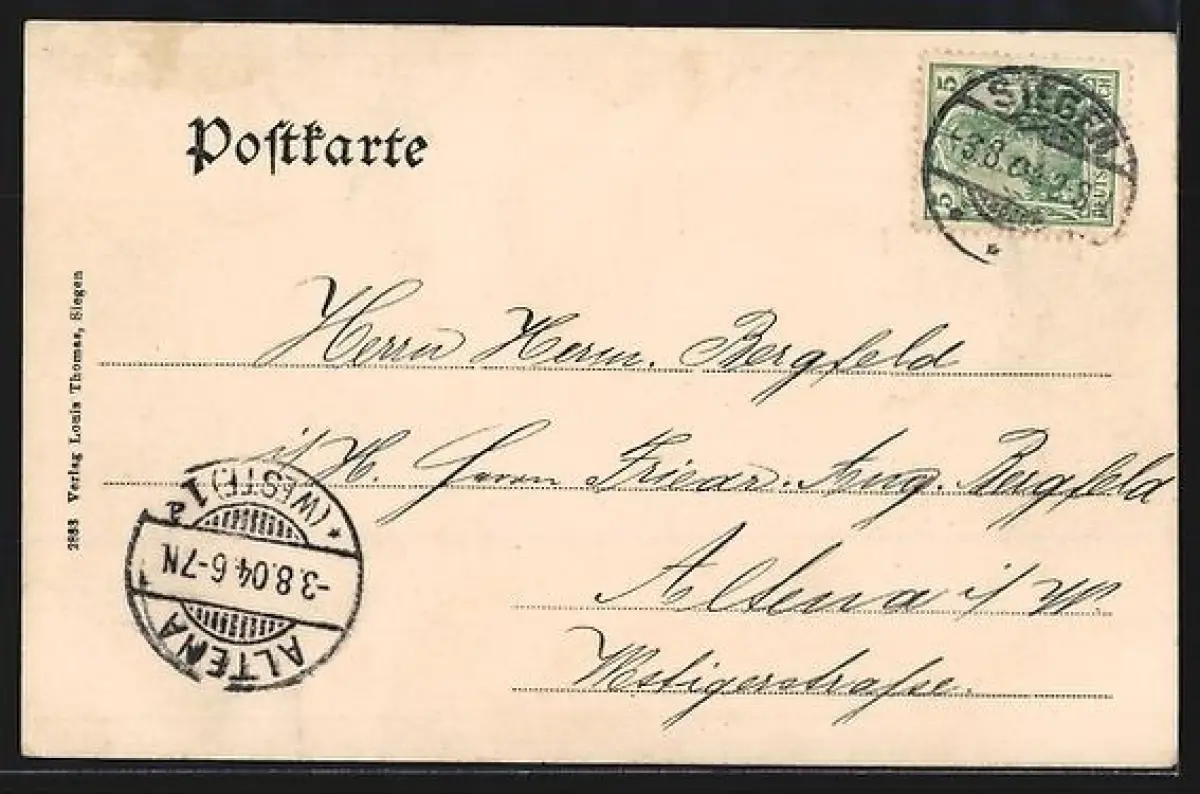 Postkarte
5
5
SIEGEN
3.8.04. 2-3
2883 Verlag Louis Thomas, Siegen
Herrn Herm. Bergfeld
i/H. Herrn Friedr. Aug. Bergfeld
Altena i/W.
Westigerstraße.
*(WESTF.) 1 a
-3.8.04.6-7N.
ALTENA